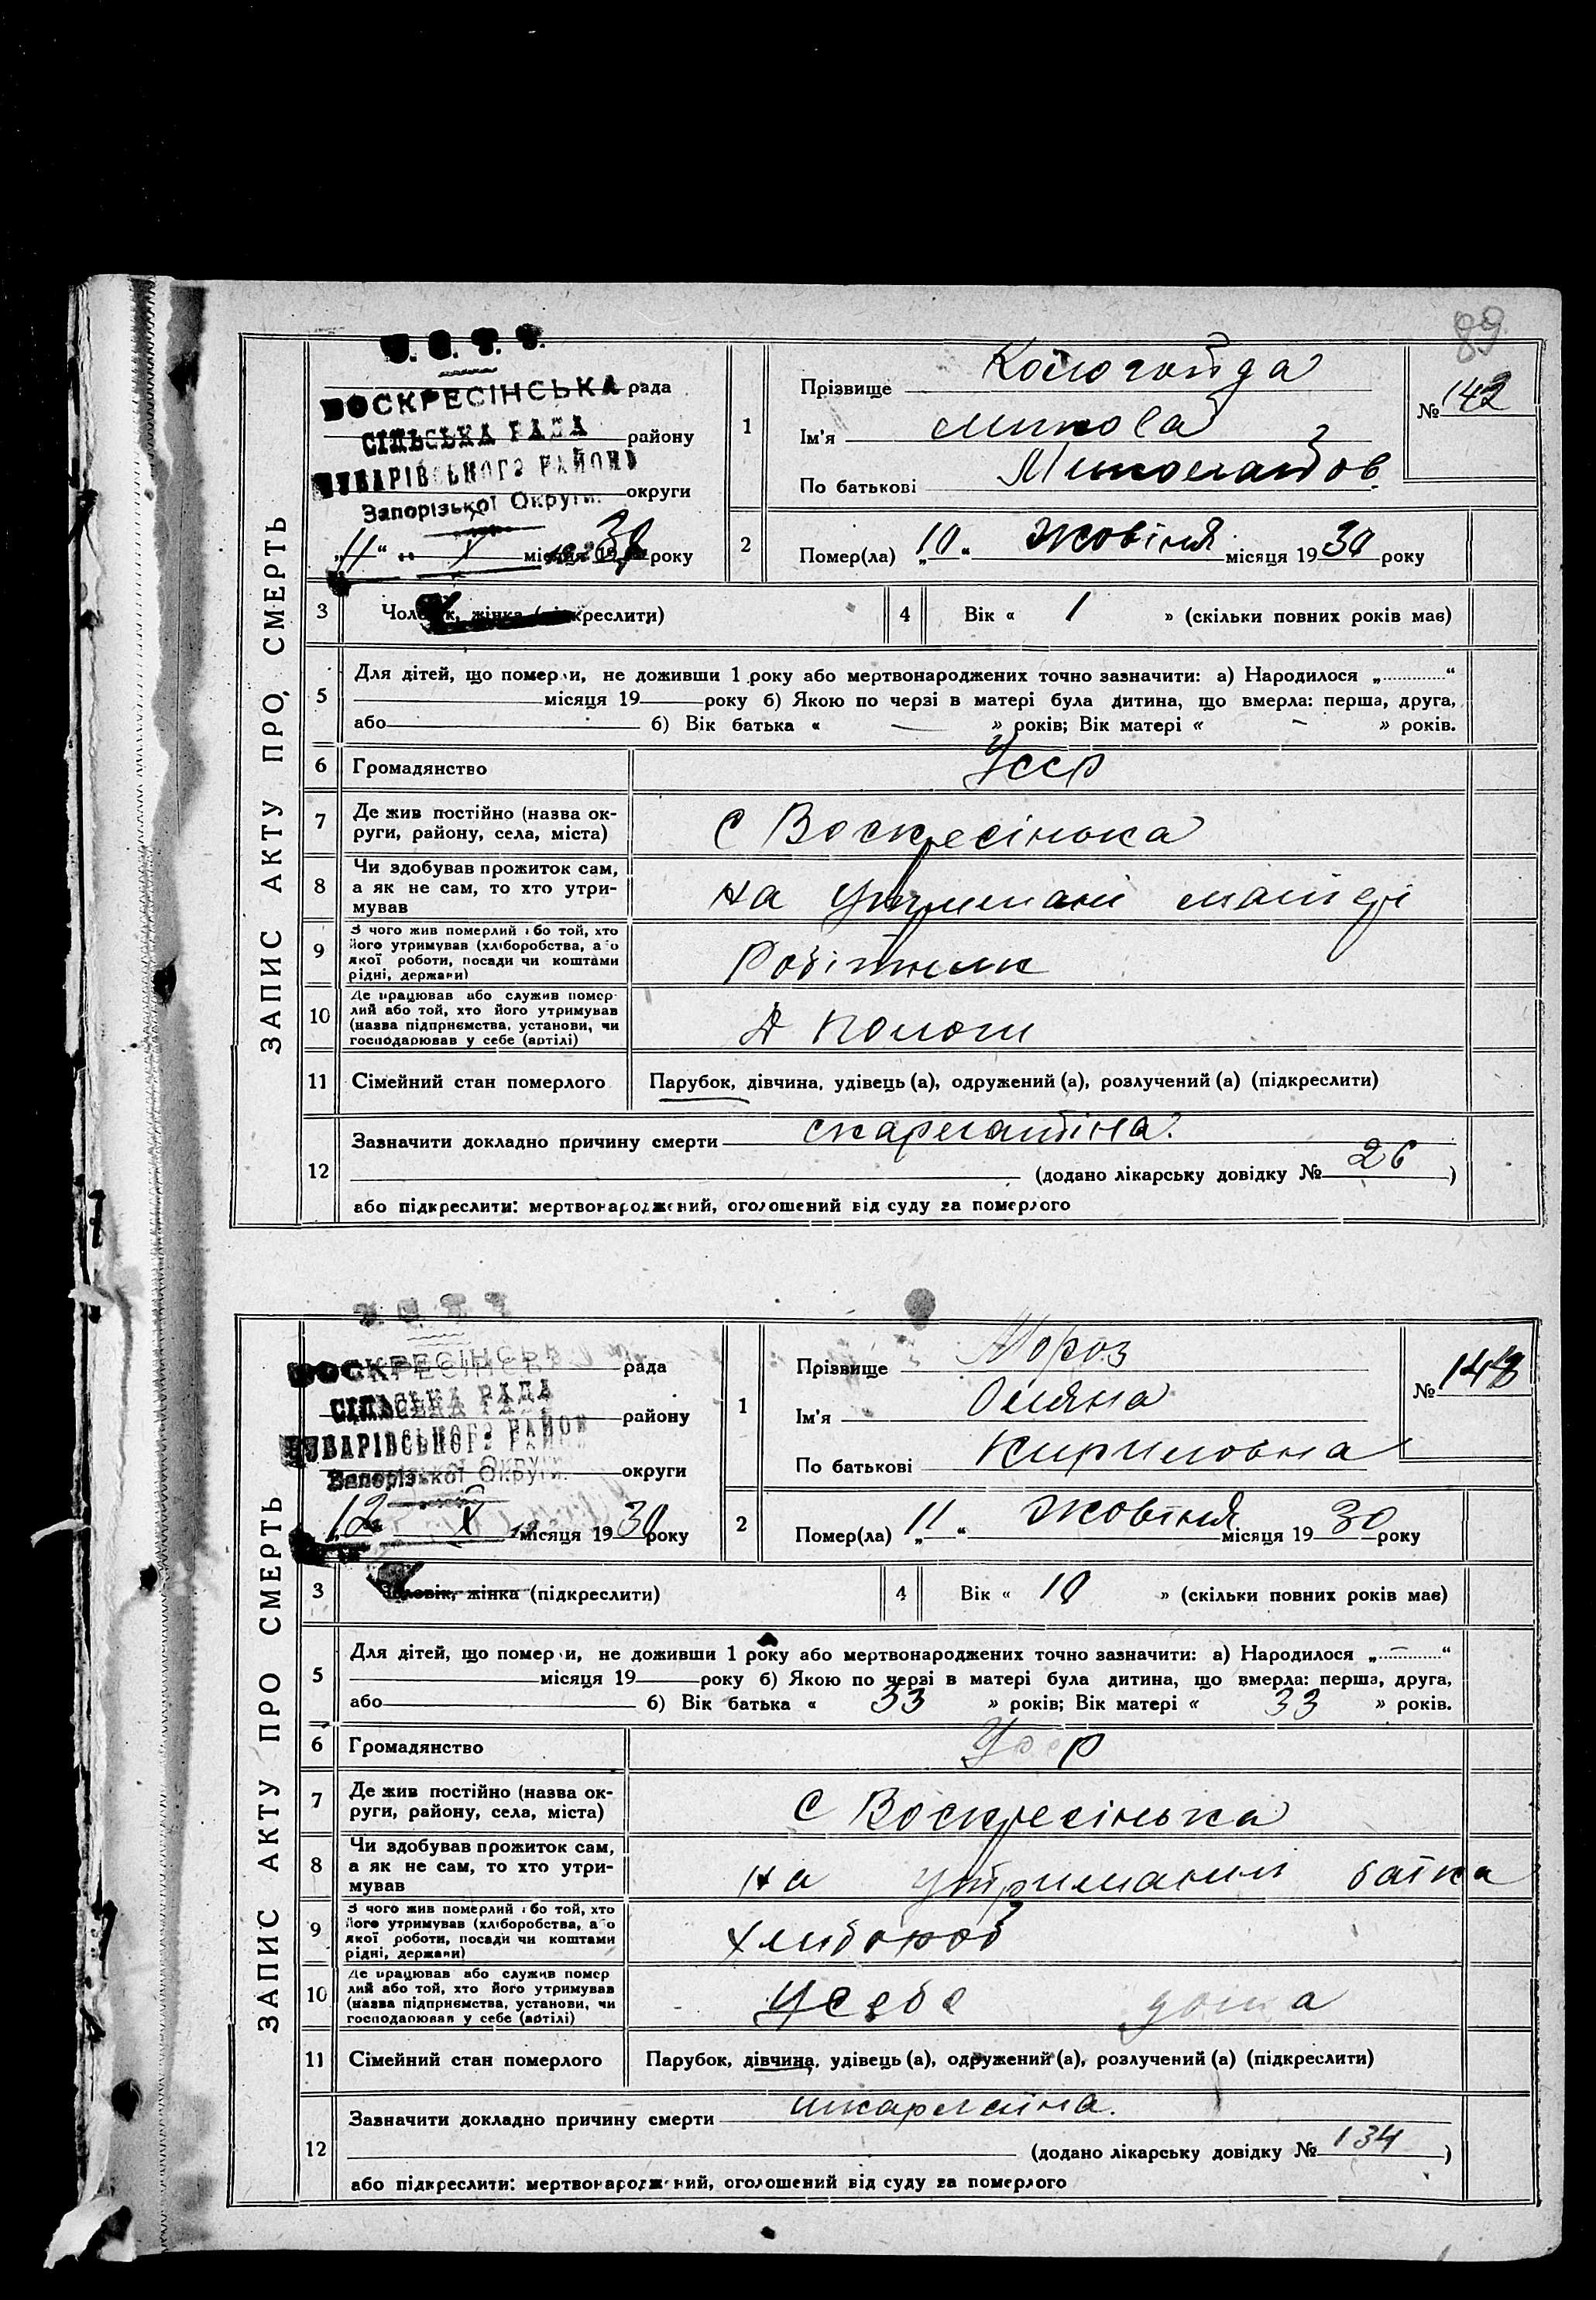 89
У. С. Р. Р.
ВОСКРЕСІНСЬКА рада
СІЛЬСЬКА РАДА району
ЧУБАРІВСЬКОГО РАЙОНУ
Запорізької Округи. округи
„11“ X місяця 1930 року
1
Прізвище
№ 142
Ім'я Микола
По батькові Миколайов.
2
Помер(ла) „10“ Жовтня місяця 1930 року
ЗАПИС АКТУ ПРО СМЕРТЬ
3 Чоловік, жінка (підкреслити)
4 Вік « 1 » (скільки повних років має)
5 Для дітей, що померли, не доживши 1 року або мертвонароджених точно зазначити: а) Народилося „............“
місяця 19 року б) Якою по черзі в матері була дитина, що вмерла: перша, друга,
або б) Вік батька « — » років; Вік матері « - » років.
6 Громадянство Усср
7 Де жив постійно (назва ок-
руги, району, села, міста) С Воскресінька
8 Чи здобував прожиток сам,
а як не сам, то хто утри-
мував на утримані матері
9 З чого жив померлий або той, хто
його утримував (хліборобства, або
якої роботи, посади чи коштами
рідні, держави) Робітник
10 Де працював або служив помер-
лий або той, хто його утримував
(назва підприємства, установи, чи
господарював у себе (артілі) Пологи
11 Сімейний стан померлого Парубок, дівчина, удівець (а), одружений (а), розлучений (а) (підкреслити)
12 Зазначити докладно причину смерти скарлатіна.
(додано лікарську довідку № 26 )
або підкреслити: мертвонароджений, оголошений від суду за померлого
У. С. Р. Р.
ВОСКРЕСІНСЬКА рада
СІЛЬСЬКА РАДА району
ЧУБАРІВСЬКОГО РАЙОНУ
Запорізької Округи. округи
„12“ X місяця 1930 року
1
Прізвище Мороз
№ 143
Ім'я Оляна
По батькові Кириловна
2
Помер(ла) „11“ Жовтня місяця 1930 року
ЗАПИС АКТУ ПРО СМЕРТЬ
3 Чоловік, жінка (підкреслити)
4 Вік « 10 » (скільки повних років має)
5 Для дітей, що померли, не доживши 1 року або мертвонароджених точно зазначити: а) Народилося „............“
місяця 19 року б) Якою по черзі в матері була дитина, що вмерла: перша, друга,
або б) Вік батька « 33 » років; Вік матері « 33 » років.
6 Громадянство Усср
7 Де жив постійно (назва ок-
руги, району, села, міста) С Воскресінька
8 Чи здобував прожиток сам,
а як не сам, то хто утри-
мував на утримании батка
9 З чого жив померлий або той, хто
його утримував (хліборобства, або
якої роботи, посади чи коштами
рідні, держави) Хлибороб
10 Де працював або служив помер
лий або той, хто його утримував
(назва підприємства, установи, чи
господарював у себе (артілі) Усебе дома
11 Сімейний стан померлого Парубок, дівчина, удівець (а), одружений (а), розлучений (а) (підкреслити)
12 Зазначити докладно причину смерти шкарлатина.
(додано лікарську довідку № 134 )
або підкреслити: мертвонароджений, оголошений від суду за померлого